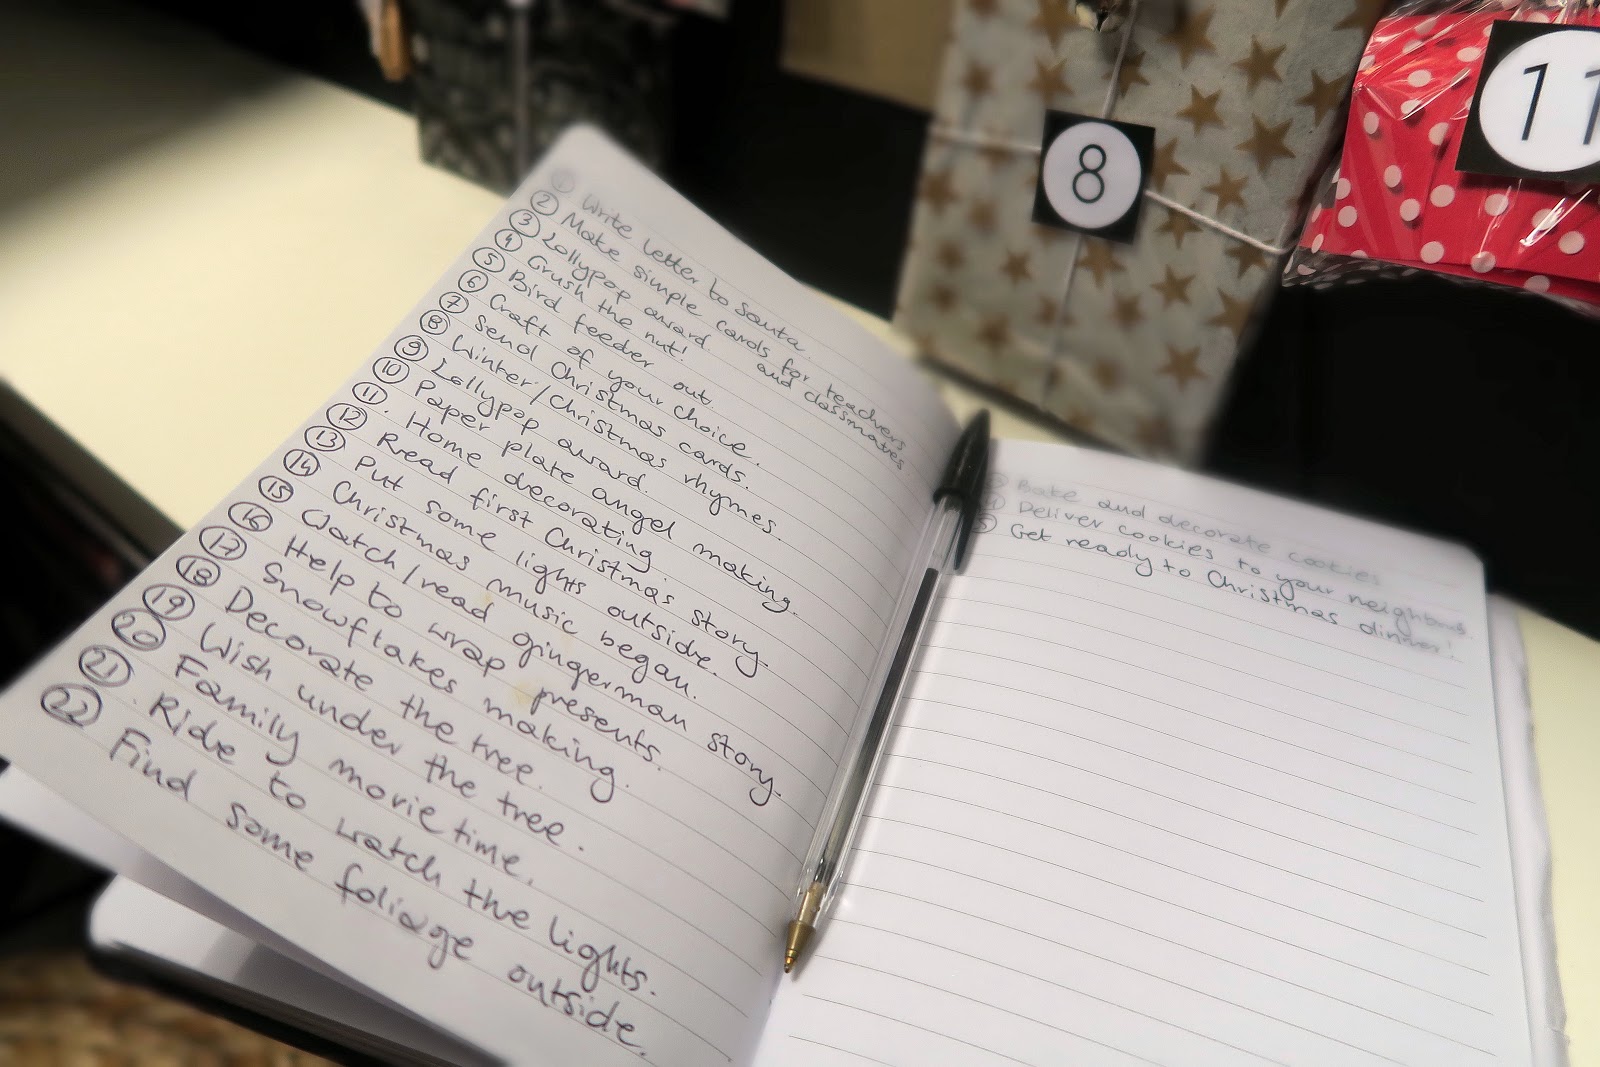 ① Write letter to santa.
② Make simple cards for teachers
and classmates
③ Lollypop award.
④ Crush the nut!
⑤ Bird feeder out.
⑥ Craft of your choice.
⑦ Send Christmas cards.
⑧ Winter/Christmas rhymes.
⑨ Lollypop award.
⑩ Paper plate angel making.
⑪ Home decorating.
⑫ Read first Christmas story.
⑬ Put some lights outside.
⑭ Christmas music began.
⑮ Watch/read gingerman story.
⑯ Help to wrap presents.
⑰ Snowflakes making.
⑱ Decorate the tree.
⑲ Wish under the tree.
⑳ Family movie time.
㉑ Ride to watch the lights.
㉒ Find some foliage outside.
Bake and decorate cookies
Deliver cookies to your neighbours.
Get ready to Christmas dinner!
8
11